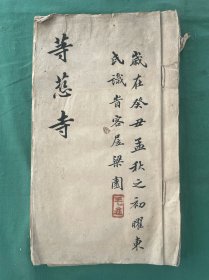 等慈寺
歲在癸丑孟秋之初曜東
氏識耑客居梁園